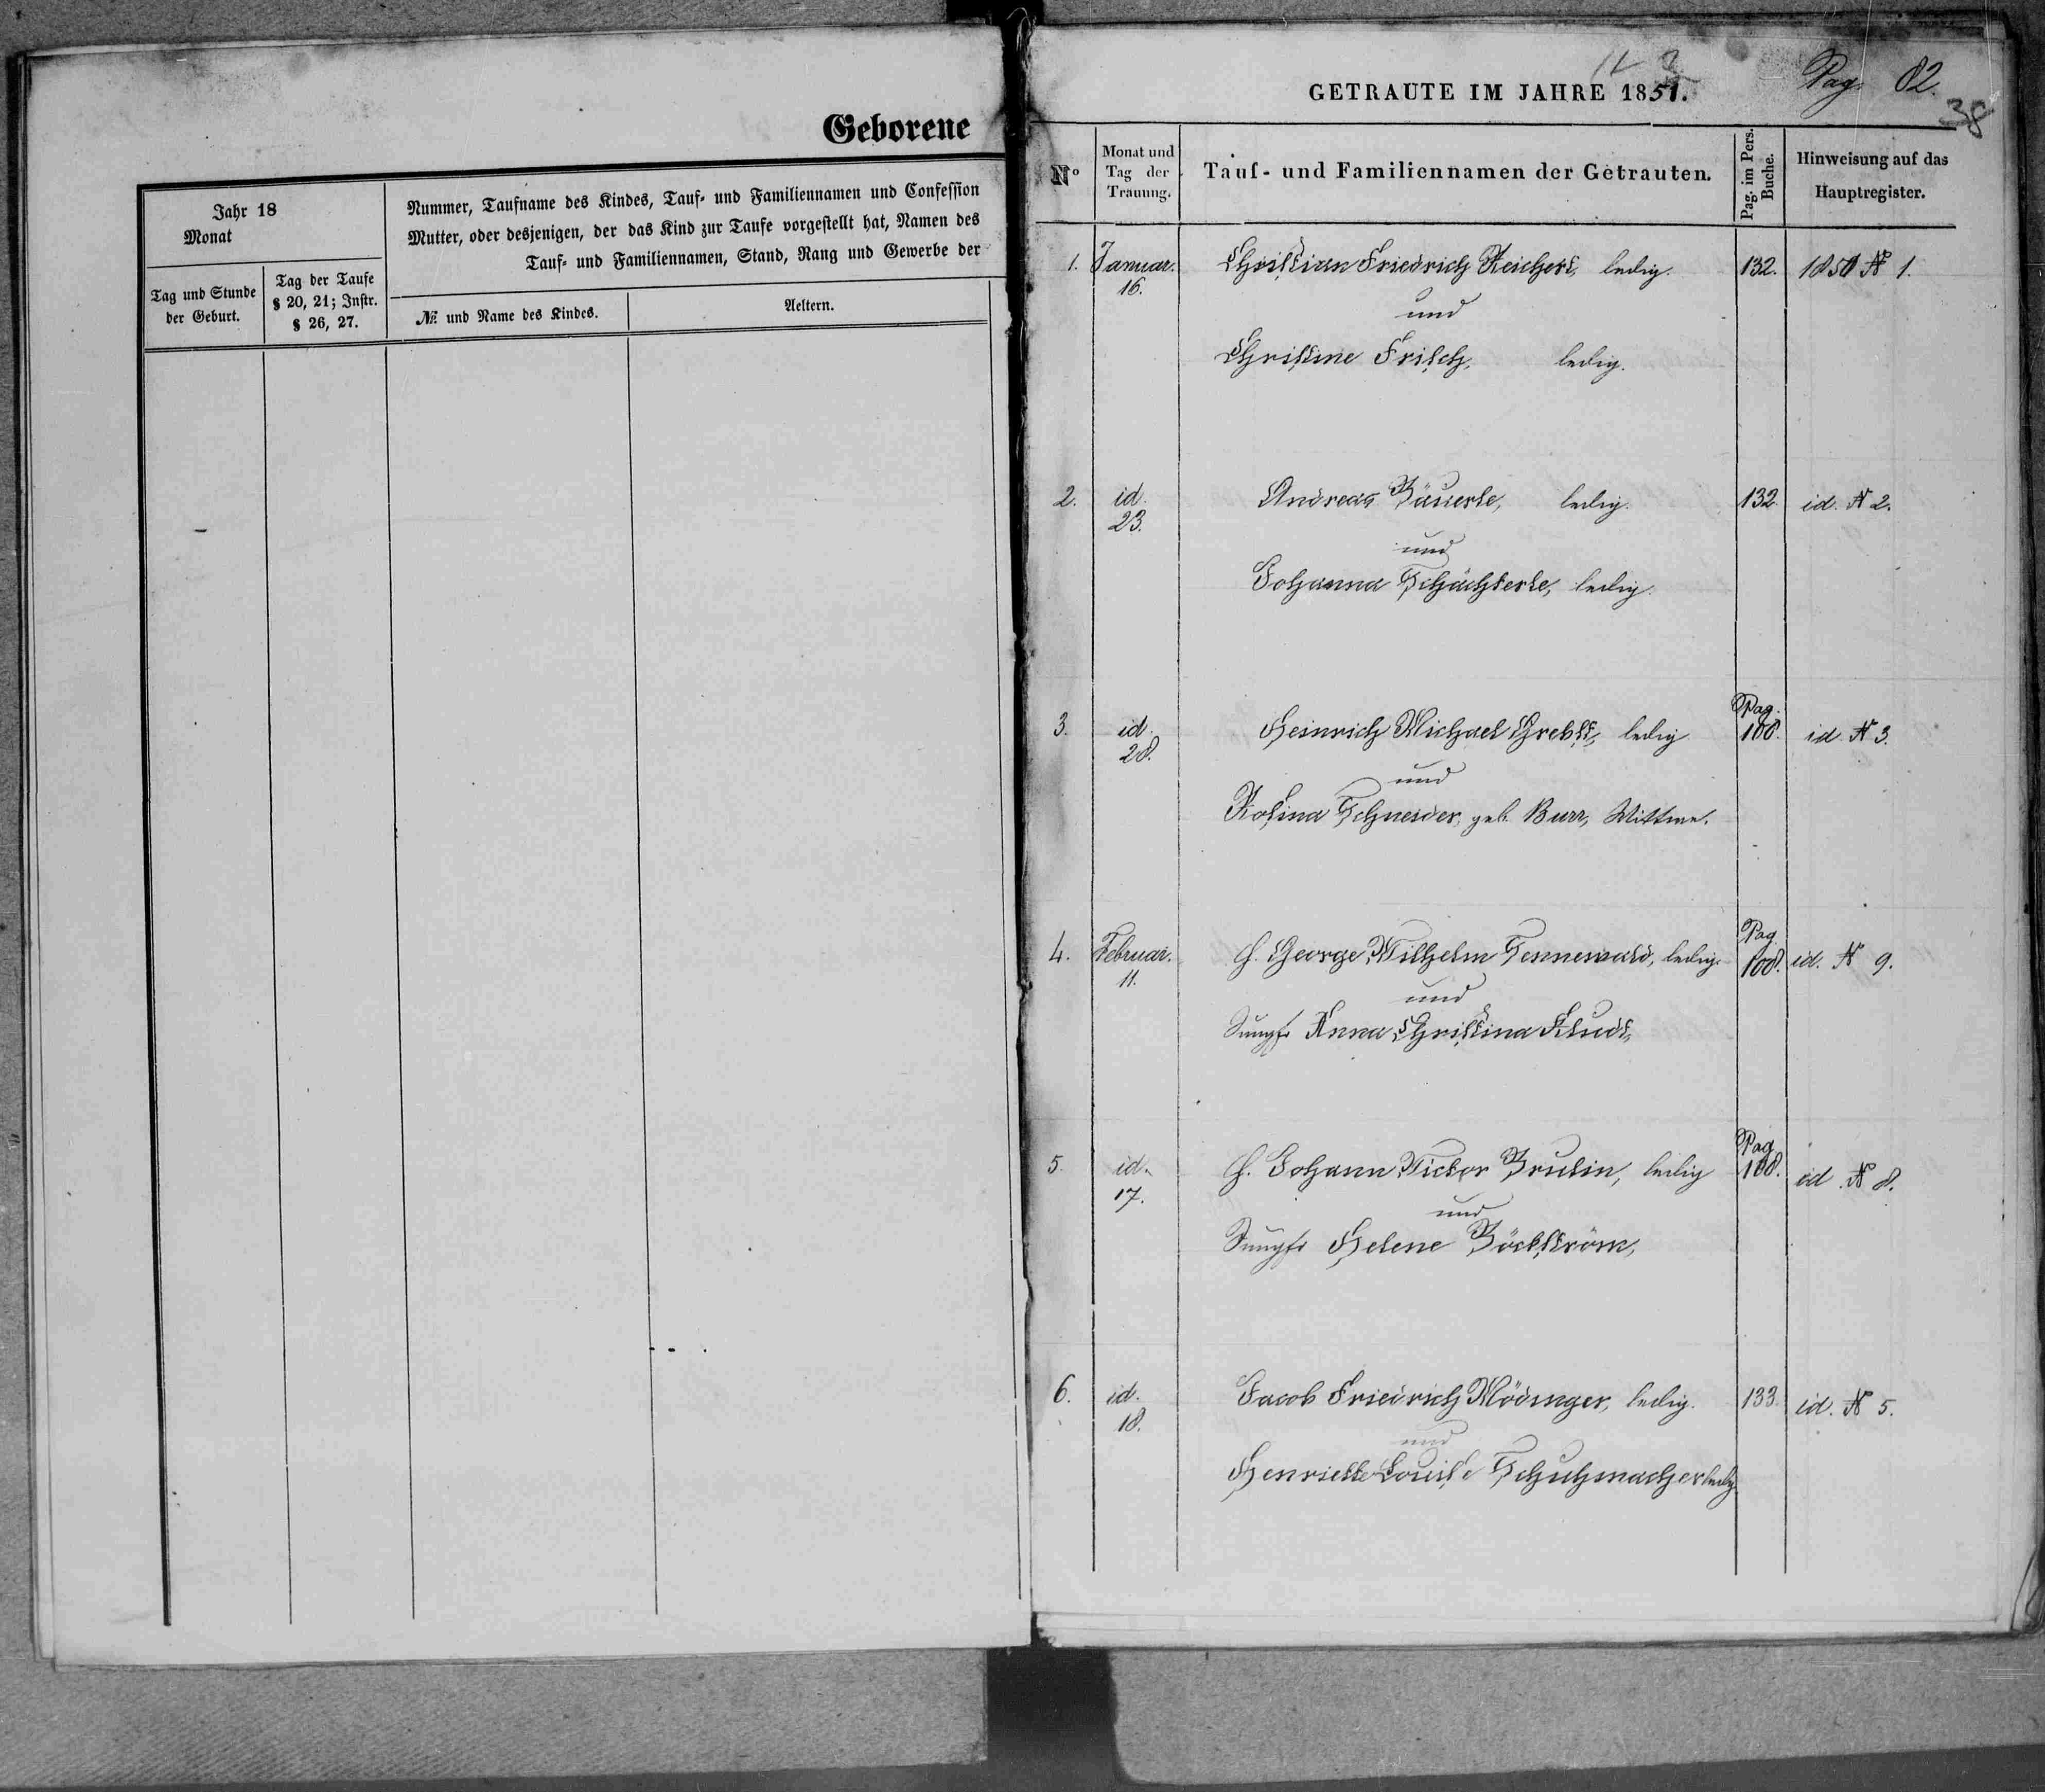 Geborene
Jahr 18
Monat
Tag und Stunde
der Geburt.
Tag der Taufe
§ 20, 21; Instr.
§ 26, 27.
Nummer, Taufname des Kindes, Tauf- und Familiennamen und Confession
Mutter, oder desjenigen, der das Kind zur Taufe vorgestellt hat, Namen des
Tauf- und Familiennamen, Stand, Rang und Gewerbe der
№ und Name des Kindes.
Aeltern.
Pag. 82.
38
GETRAUTE IM JAHRE 1851.
Nº
Monat und
Tag der
Trauung.
Tauf- und Familiennamen der Getrauten.
Pag. im Pers.
Buche.
Hinweisung auf das
Hauptregister.
1. Januar. Christian Friedrich Reichert, ledig. 132. 1851 № 1.
16.
und
Christine Frisch, ledig.
2. id. Andreas Bäuerle, ledig. 132. id. № 2.
23.
und
Johanna Schächterle, ledig.
Pag.
3. id. Heinrich Michael Grebst, ledig 108. id. № 3.
28.
und
Rosina Schneider, geb. Burr, Wittwe.
Pag.
4. Februar. H. George Wilhelm Sennewald, ledig. 108. id. № 9.
11.
und
Jungfr Anna Christina Kludt,
Pag
5. id. H. Johann Victor Brulin, ledig 108. id № 8.
17.
und
Jungfr Helene Böckström,
6. id. Jacob Friedrich Mödinger, ledig. 133. id. № 5.
18.
und
Henriette Louise Schuhmacher ledig